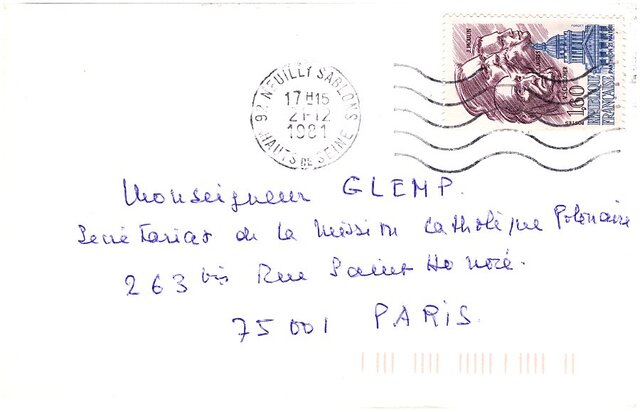 92 NEUILLY SABLONS
17H15
21-12
1981
HAUTS DE SEINE
J. MOULIN
1,60
REPUBLIQUE
FRANÇAISE
Monseigneur GLEMP.
Secrétariat de la Mission Catholique Polonaise
263 bis Rue Saint Honoré.
75001 PARIS